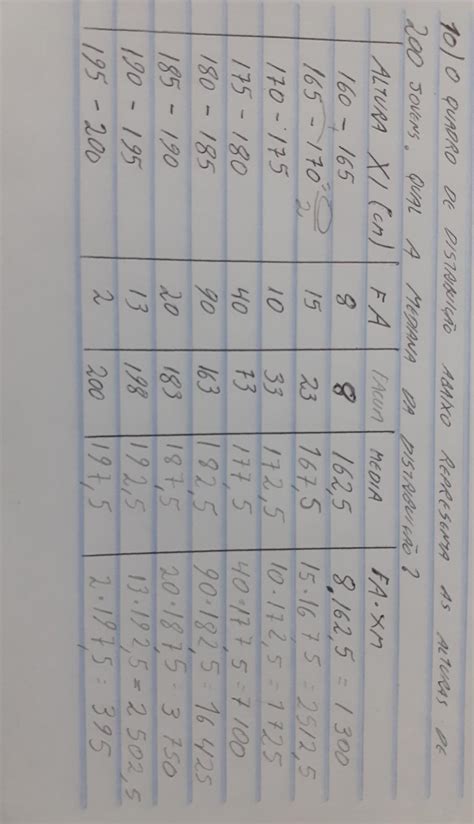 10) O QUADRO DE DISTRIBUIÇÃO ABAIXO REPRESENTA AS ALTURAS DE
200 JOVENS. QUAL A MEDIANA DA DISTRIBUIÇÃO?
ALTURA XI (cm) FA FACUM MEDIA FA.XM
160 - 165 8 8 162,5 8.162,5 = 1300
165 - 170 = 2 15 23 167,5 15.167,5 = 2512,5
170 - 175 10 33 172,5 10.172,5 = 1725
175 - 180 40 73 177,5 40.177,5 = 7100
180 - 185 90 163 182,5 90.182,5 = 16425
185 - 190 20 183 187,5 20.187,5 = 3750
190 - 195 13 198 192,5 13.192,5 = 2502,5
195 - 200 2 200 197,5 2.197,5 = 395